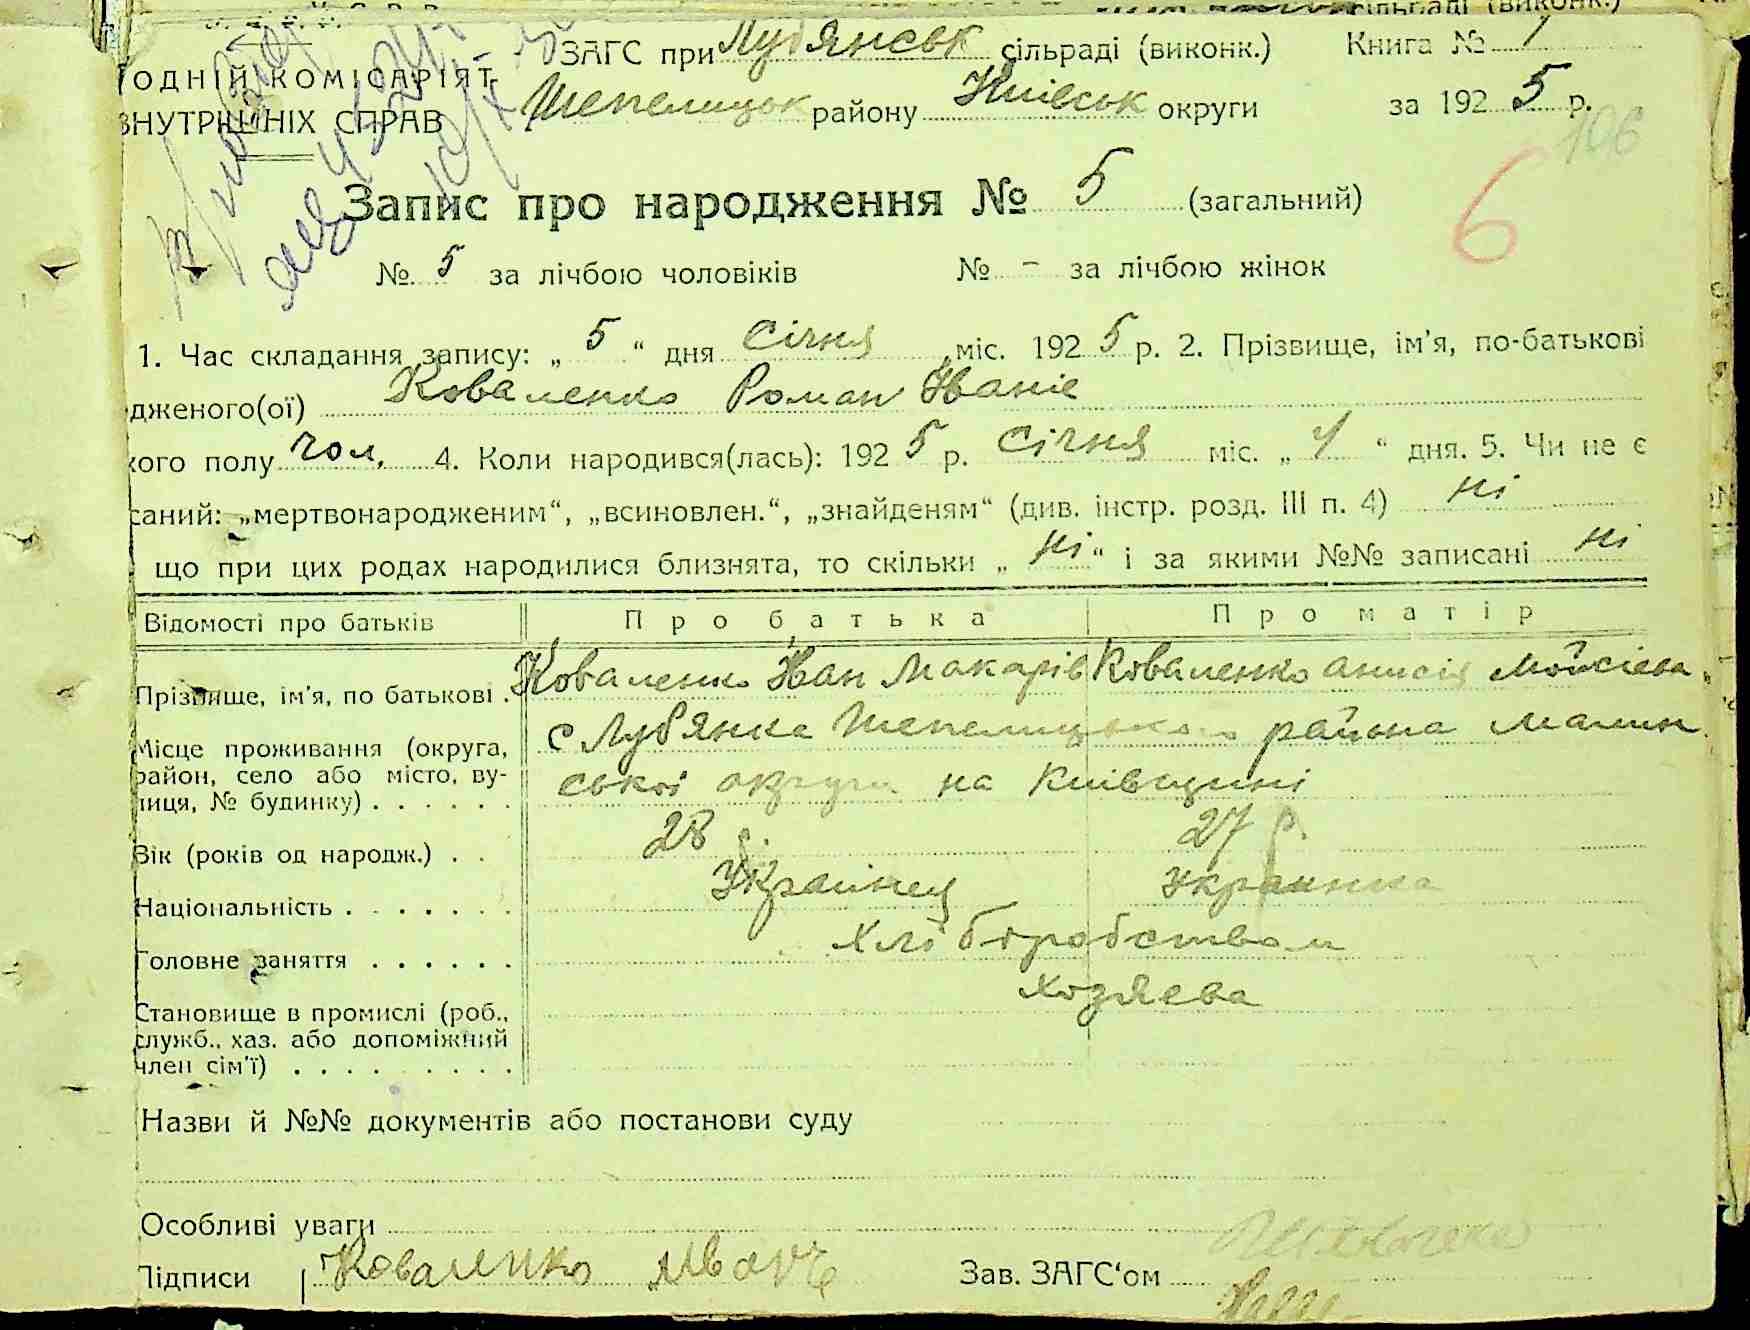 ЗАГС при Лубянськ сільраді (виконк.) Книга № 1
ОДНІЙ КОМІСАРІЯТ
ВНУТРІШНІХ СПРАВ
Шепелицьк району Київськ округи за 1925 р.
106
6
Запис про народження № 5 (загальний)
№ 5 за лічбою чоловіків № - за лічбою жінок
1. Час складання запису: „ 5 “ дня Січня міс. 1925 р. 2. Прізвище, ім'я, по-батькові
дженого(ої) Коваленко Роман Іванів
кого полу чол. 4. Коли народився(лась): 1925 р. Січня міс. „ 4 “ дня. 5. Чи не є
саний: „мертвонародженим“, „всиновлен.“, „знайденям“ (див. інстр. розд. III п. 4) ні
що при цих родах народилися близнята, то скільки „ ні “ і за якими №№ записані ні
Відомості про батьків Про батька Про матір
Прізвище, ім'я, по батькові . Коваленко Іван Макарів Коваленко Анисія Мойсієва
Місце проживання (округа, район, село або місто, вулиця, № будинку) . . . . . . с Лубянка Шепелицького района Малин
ської округи на Київщині
Вік (років од народж.) . . 28 р. 27 р.
Національність . . . . . . . Украінец Украинка
Головне заняття . . . . . . Хліборобством
Становище в промислі (роб., служб., хаз. або допоміжний член сім'ї) . . . . . . . . . хозяева
Назви й №№ документів або постанови суду
Особливі уваги
Підписи Коваленко Іван Зав. ЗАГС'ом